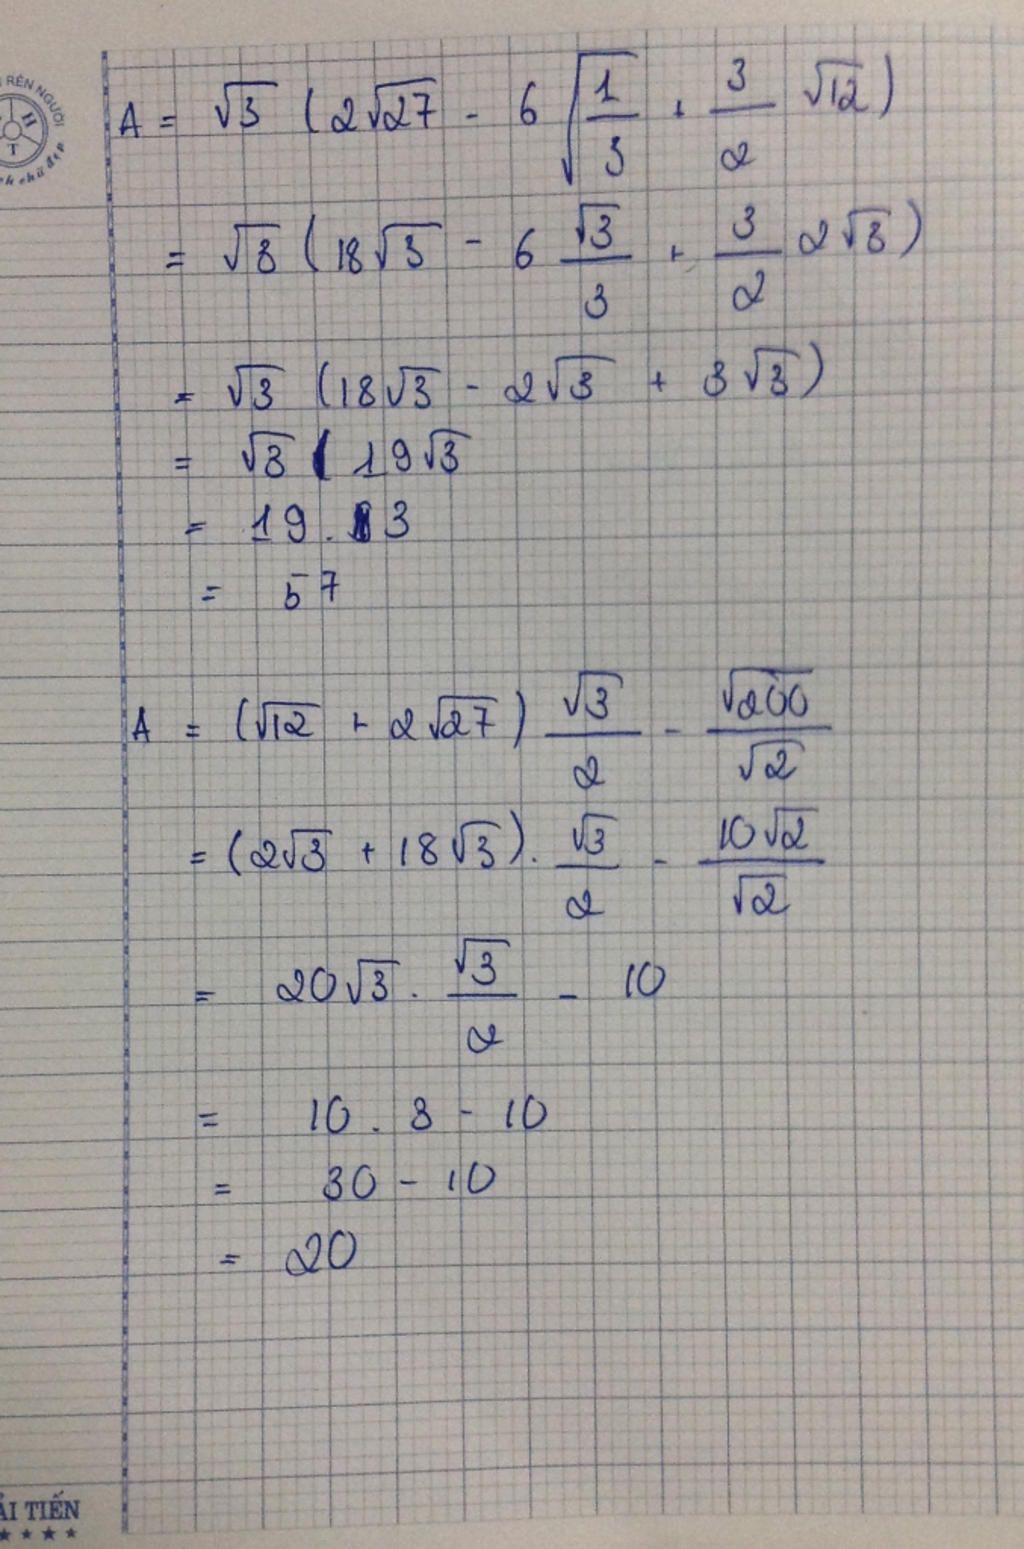 RÈN NGƯỜI
H
T
chữ đẹp
A = √3 (2√27 - 6 √(1/3) + 3/2 √12)
= √3 (18√3 - 6 √3/3 + 3/2 2√3)
= √3 (18√3 - 2√3 + 3√3)
= √3 ( 19√3
= 19 . 3
= 57
A = (√12 + 2√27) √3/2 - √200/√2
= (2√3 + 18√3) . √3/2 - 10√2/√2
= 20√3 . √3/2 - 10
= 10 . 3 - 10
= 30 - 10
= 20
ẢI TIẾN